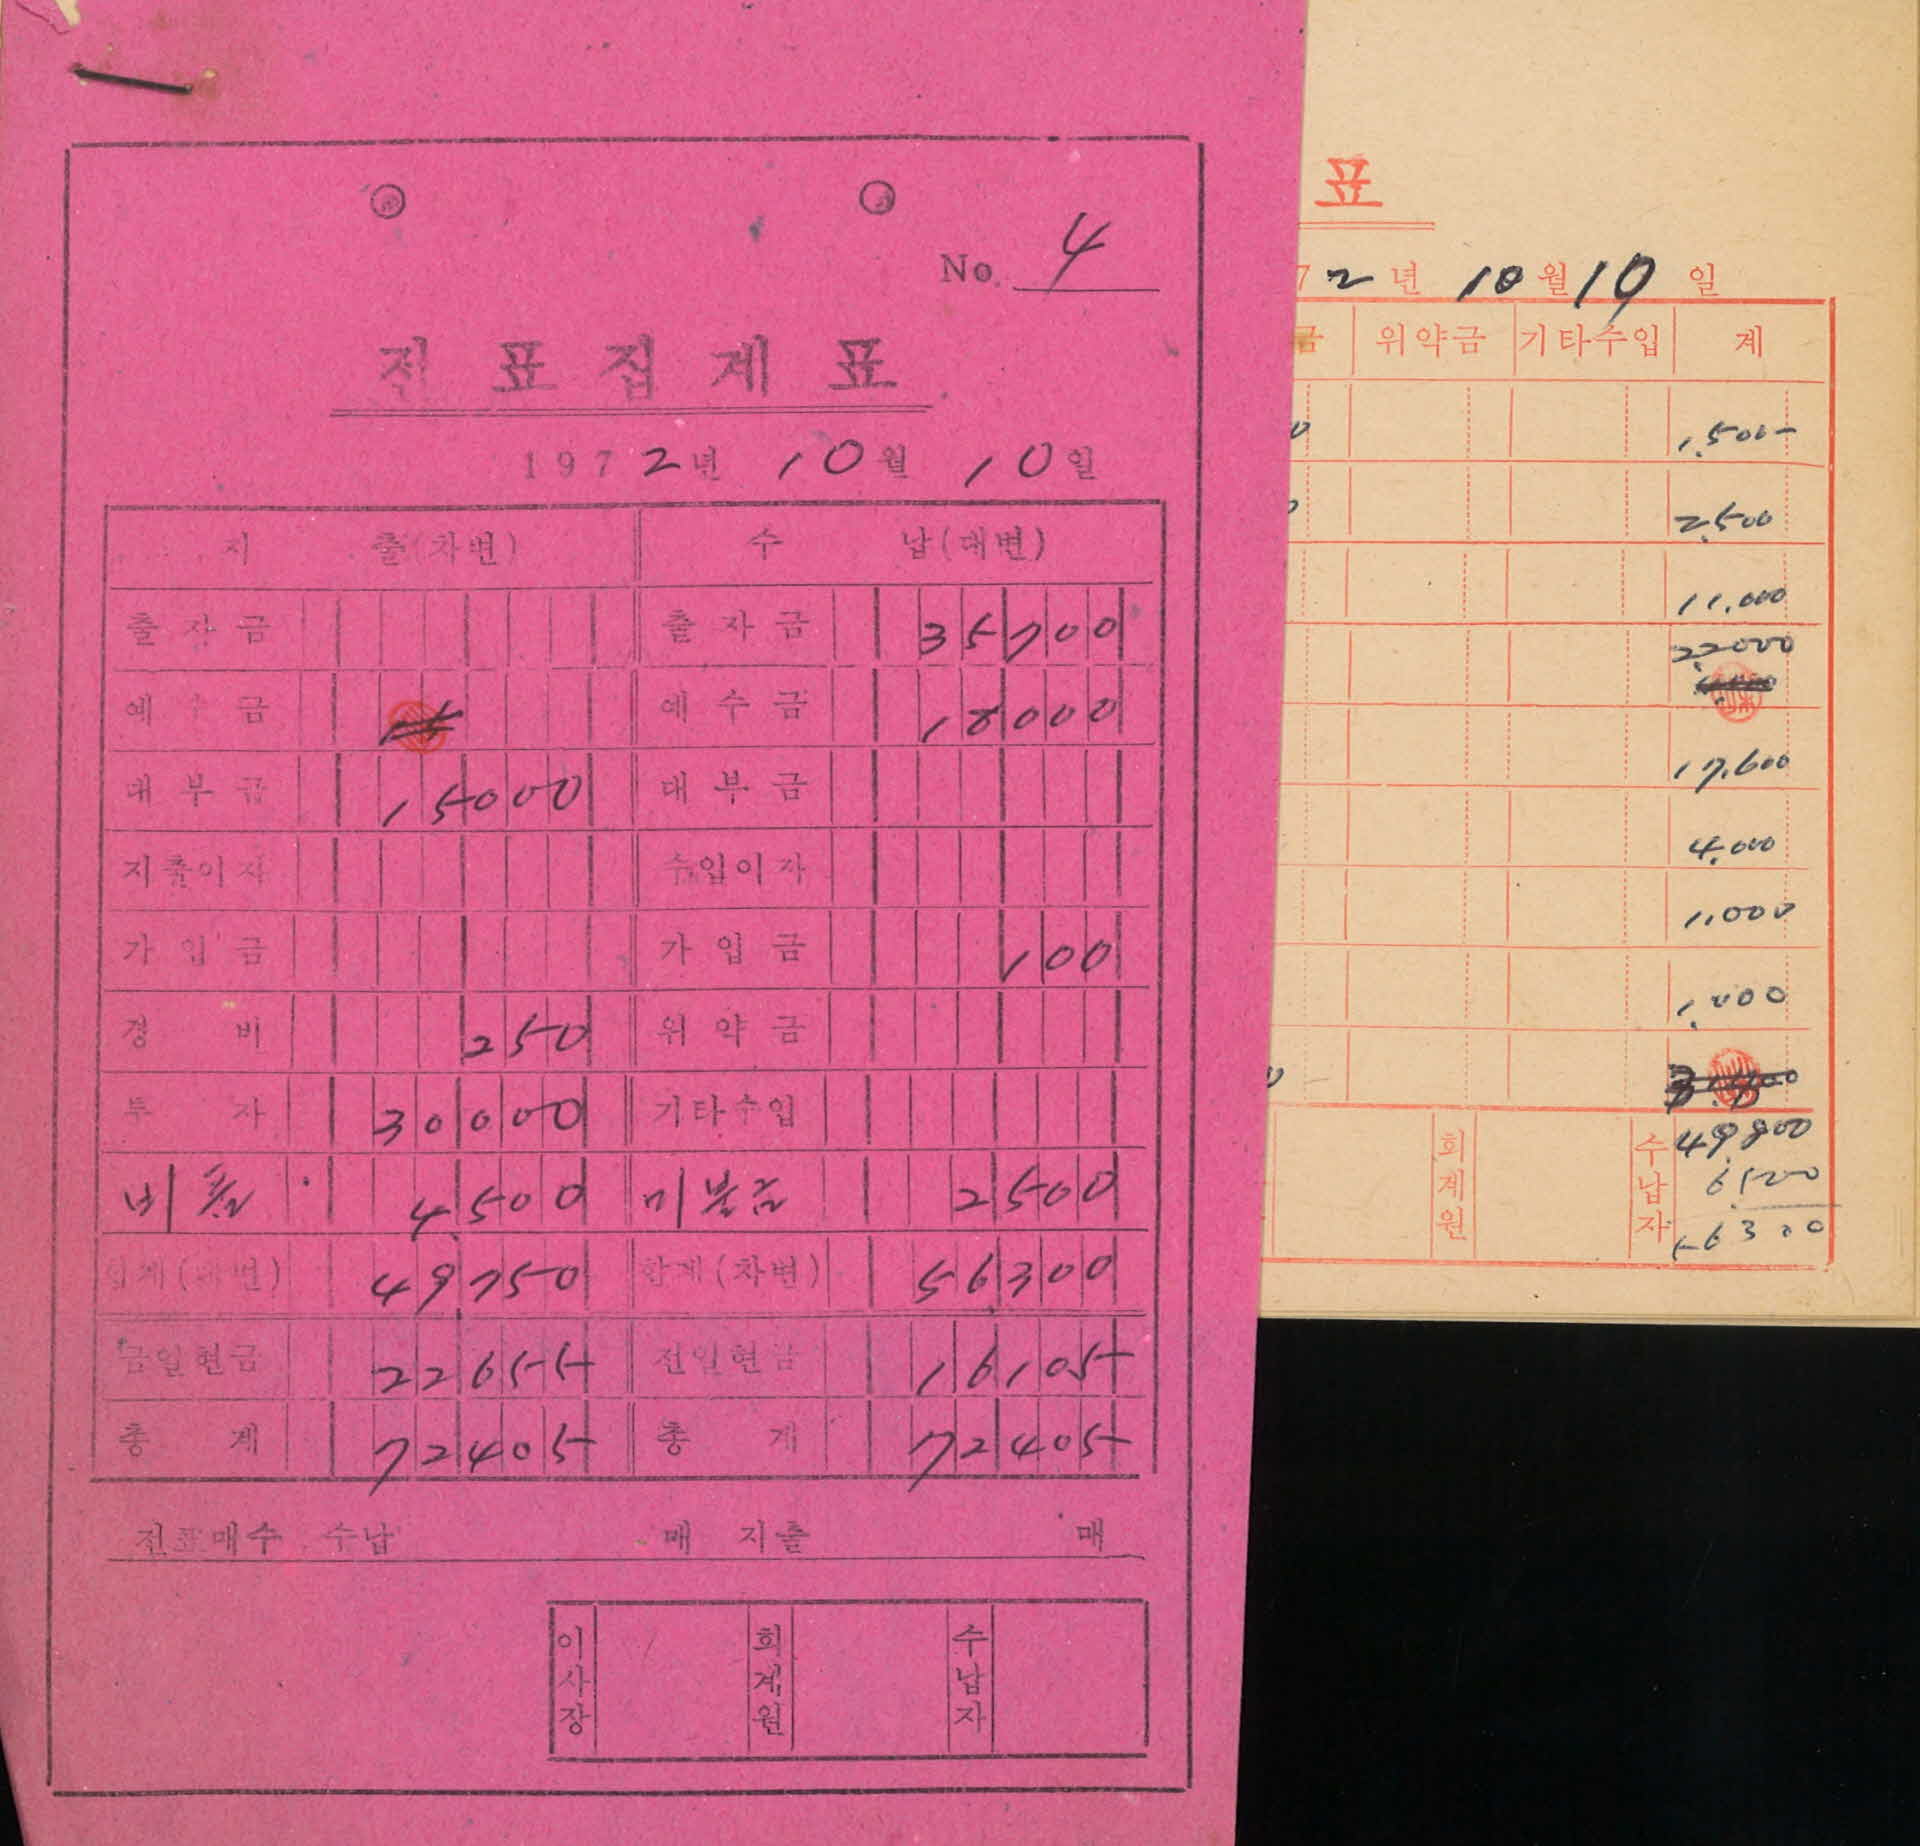 No. 4
전표집계표
1972년 10월 10일
지 출(차변) 수 납(대변)
출자금 출자금 35700
예수금 예수금 18000
대부금 15000 대부금
지출이자 수입이자
가입금 가입금 100
경비 250 위약금
투자 30000 기타수입
비품 4500 미불금 2500
합계(대변) 49750 합계(차변) 56300
금일현금 22655 전일현금 16105
총계 72405 총계 72405
전표매수 수납 매 지출 매
이사장 회계원 수납자
표
72년 10월 10일
금 위약금 기타수입 계
1,500
2,500
11,000
22000
17,600
4,000
1,000
1,000
회계원 수납자
49,800
6,500
56300